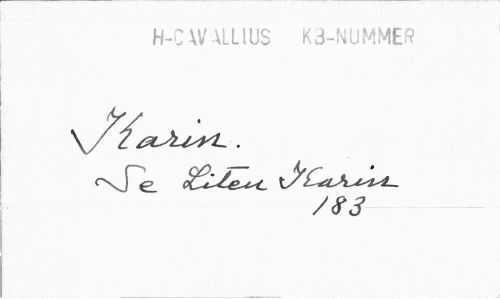 H-CAVALLIUS KB-NUMMER
Karin.
Se Liten Karin
183